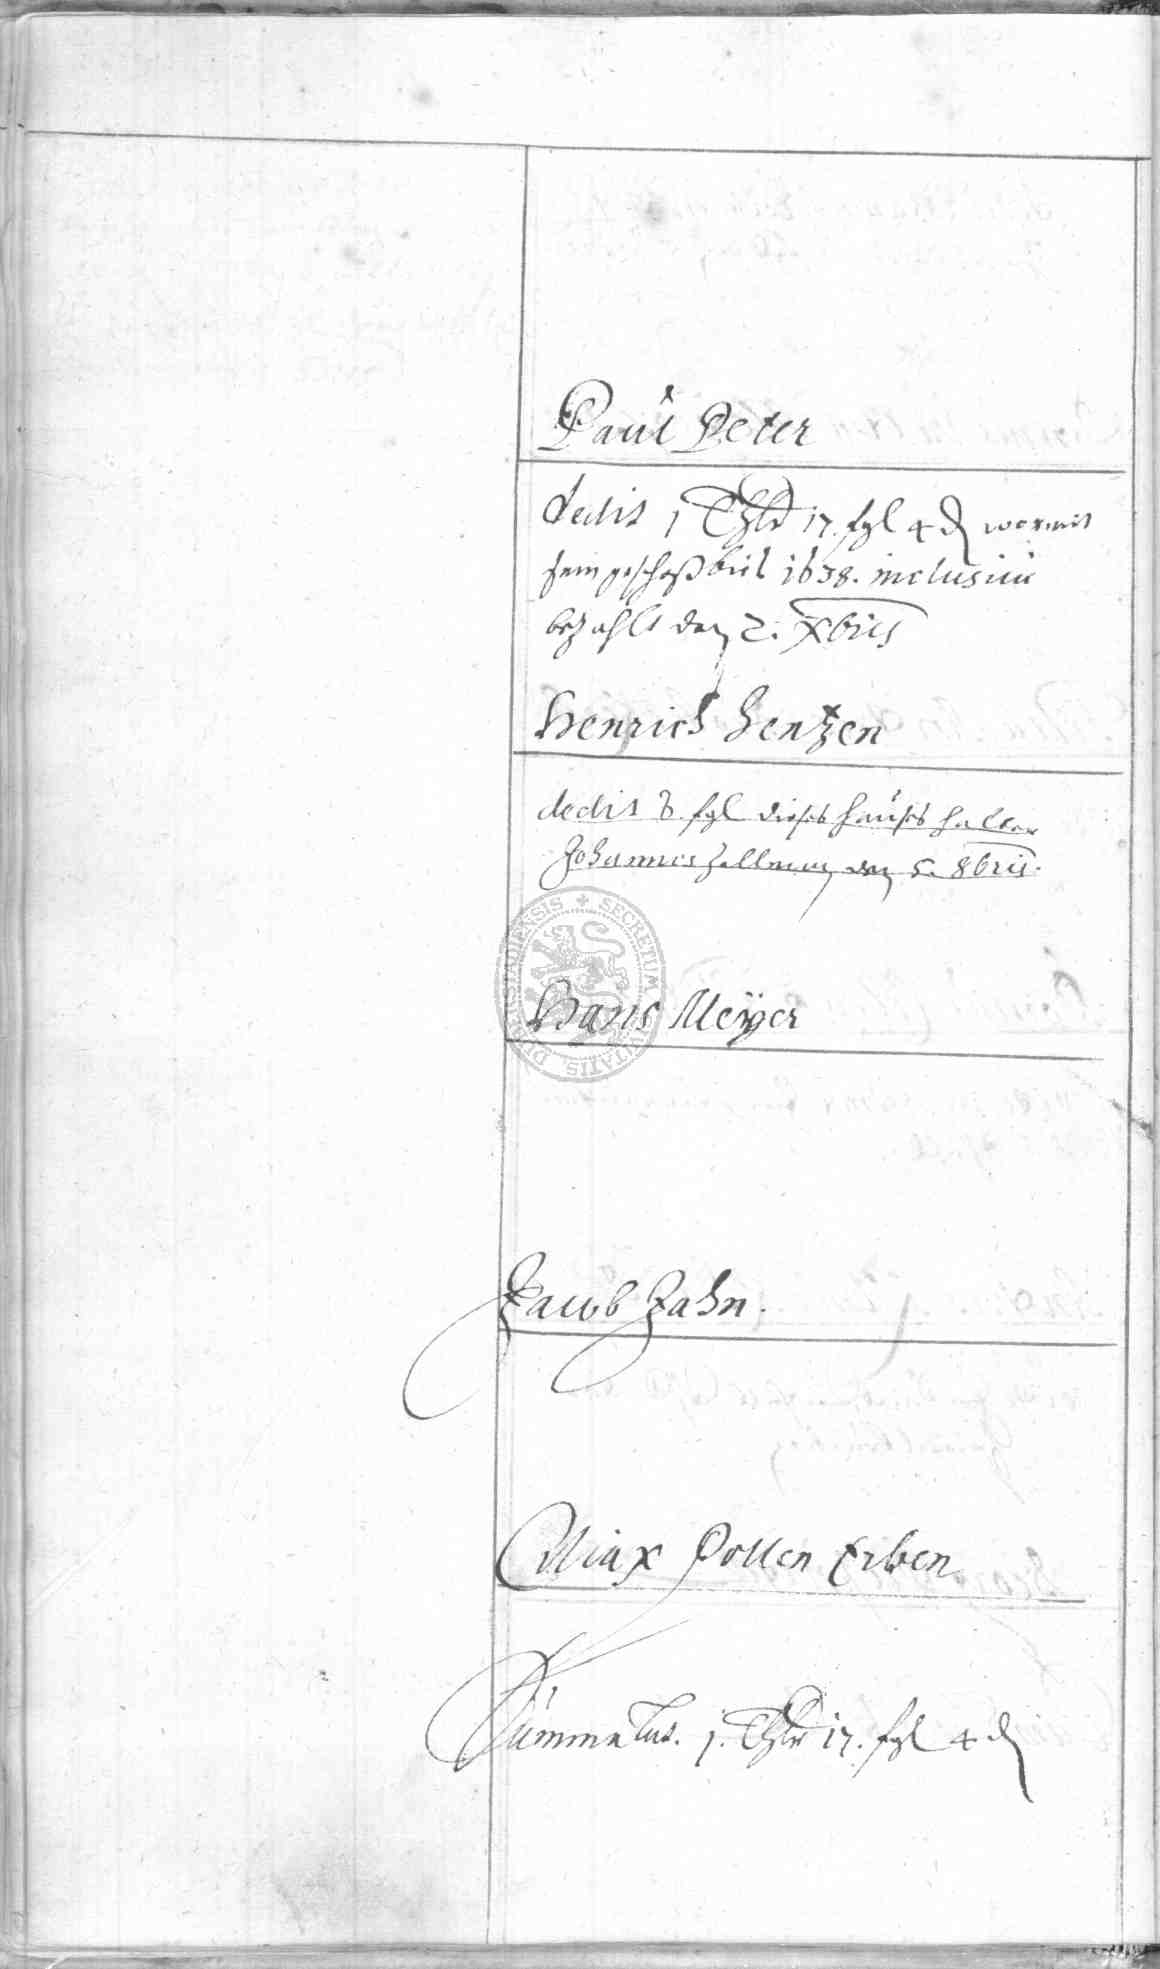 Paul Peter
dedit 1 Thlr 17. sgl 4 d wormit
sein geschoß bis 1638. inclusiu
bezahlt den 2. Xbris
Henrich Hentzen
dedit 8. sgl dieses hauses halber
Johannes den 5. 8bris.
SECRETUM CIVITATIS
Hans Meÿer
Jacob Zahn.
Max Erben
Summa lat. 1. Thlr 17. sgl 4 d